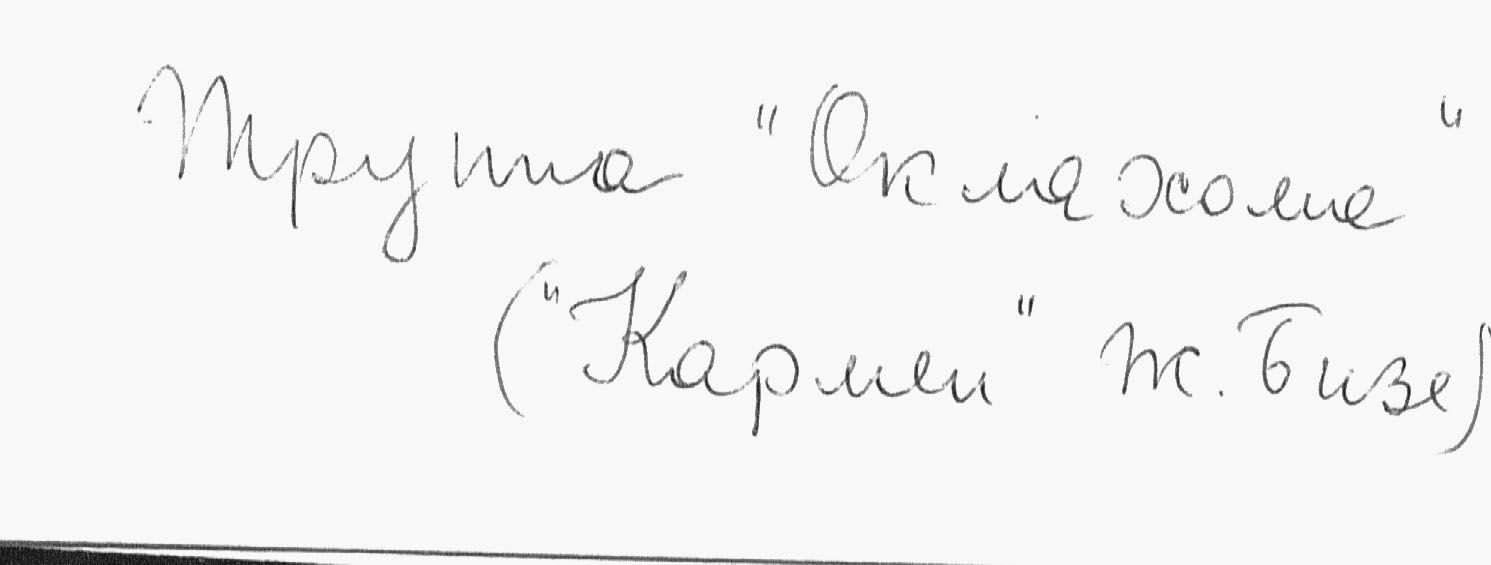 Труппа "Оклахома"
("Кармен" Ж. Бизе)